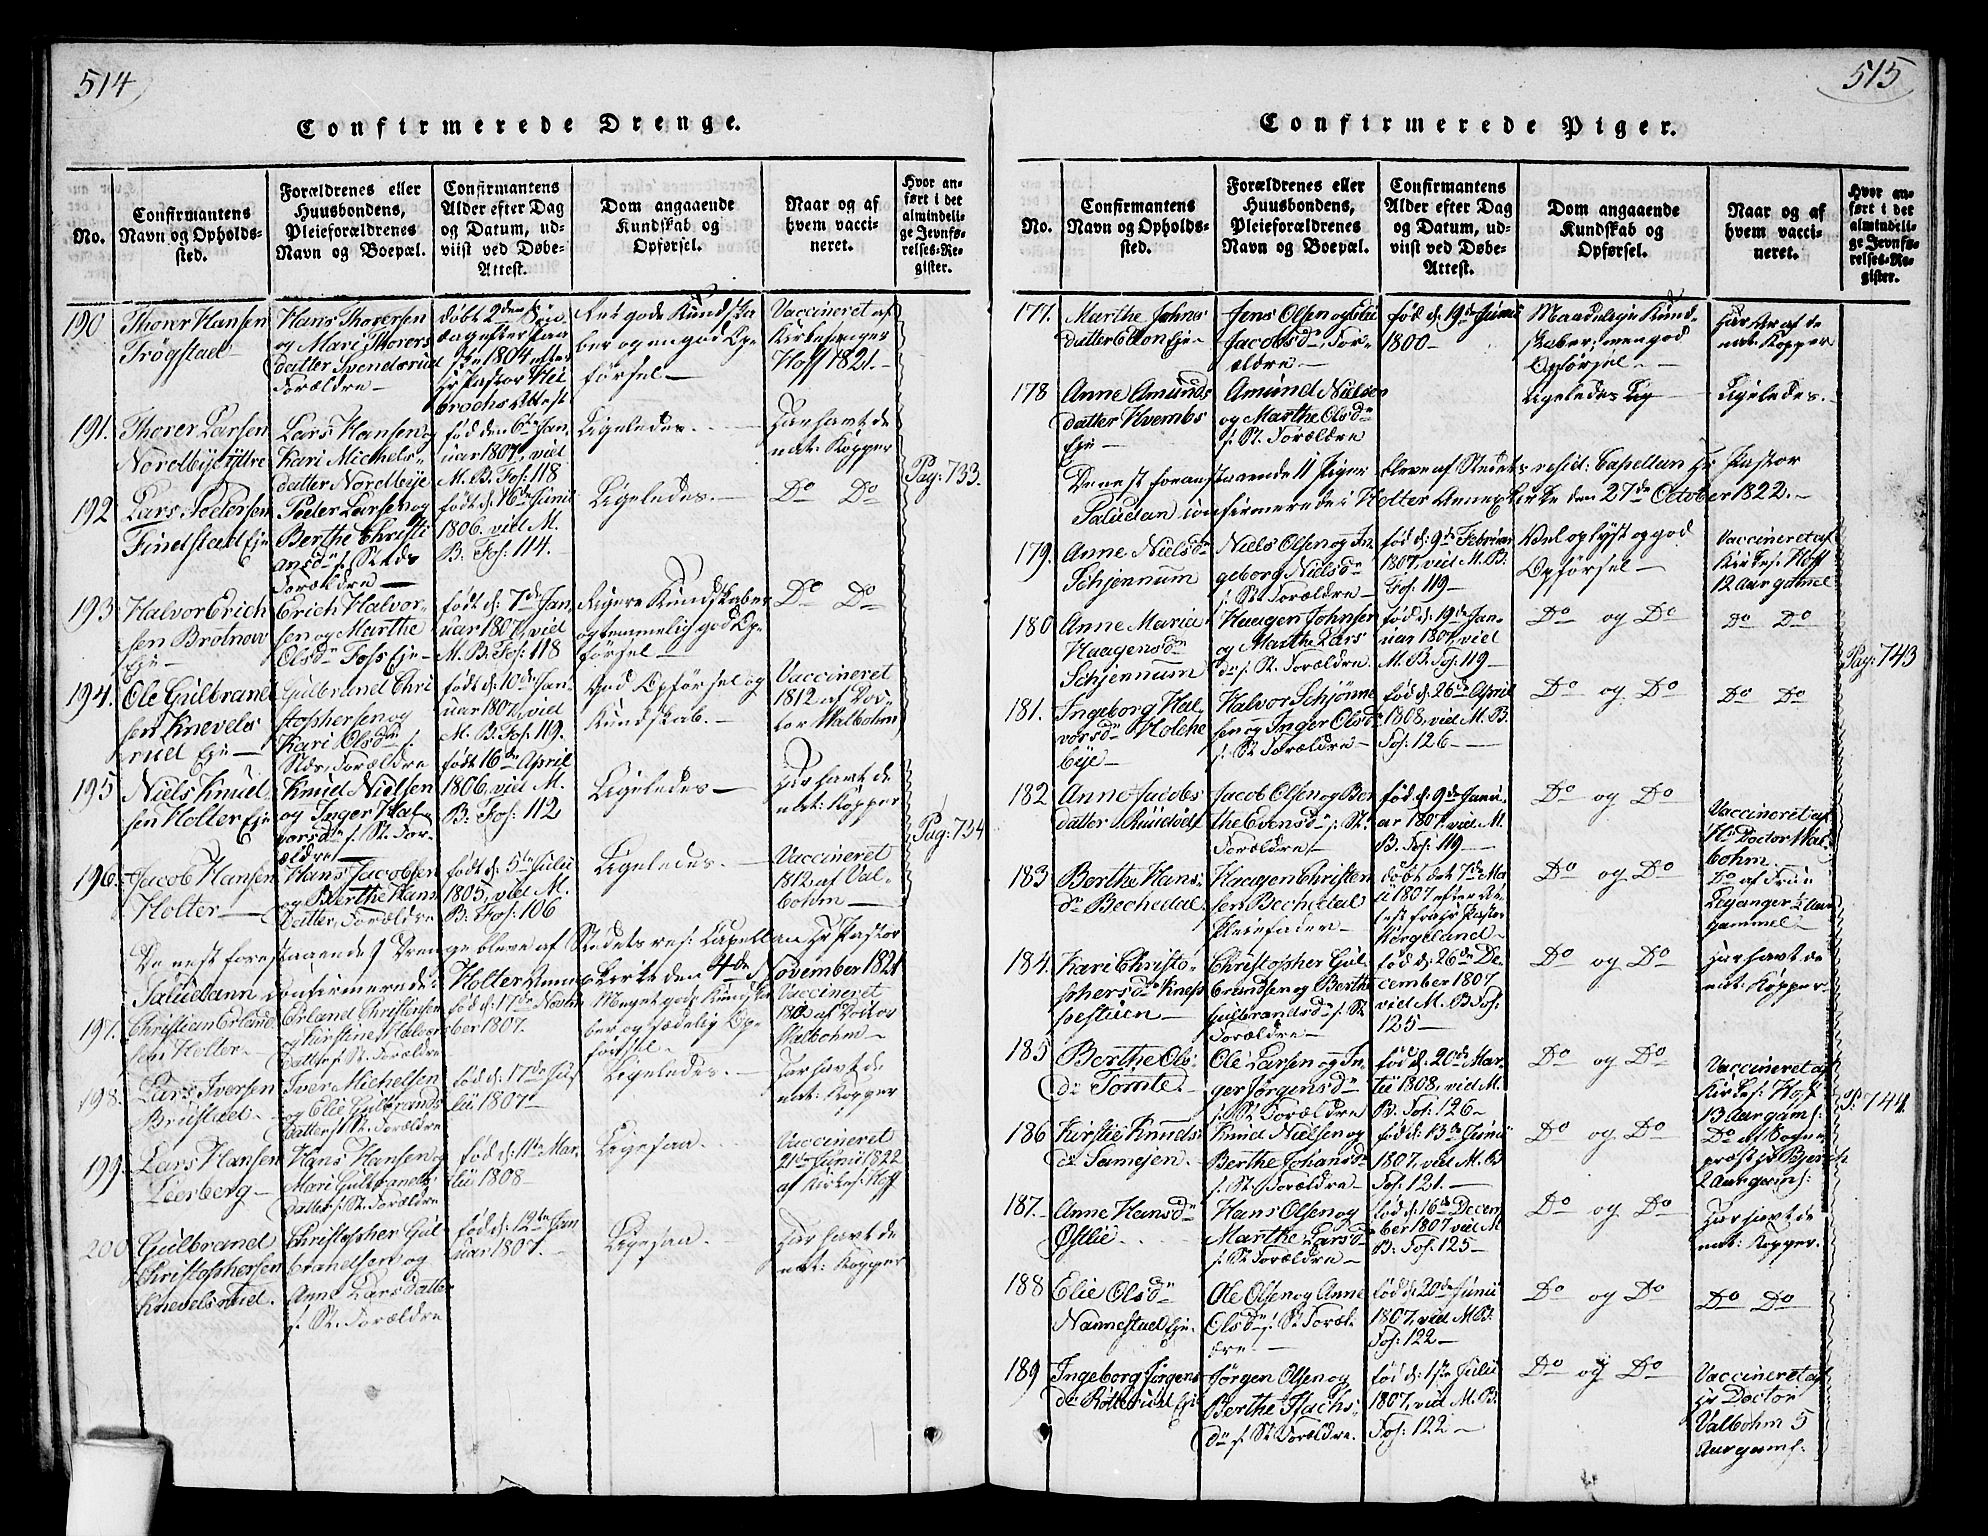 514
Confirmerede Drenge.
No.
Confirmantens
Navn og Opholds-
sted.
Forældrenes eller
Huusbondens,
Pleieforældrenes
Navn og Boepæl.
Confirmantens
Alder efter Dag
og Datum, ud-
viist ved Døbe-
Attest.
Dom angaaende
Kundskab og
Opførsel.
Naar og af
hvem vacci-
neret.
Hvor an-
ført i det
almindeli-
ge Jevnfø-
relses-Re-
gister.
190
Thorer Hansen
Frøgstad
Hans Thorersen
og Mari Thorers
datter Svendsrud
Forældre
døbt 2den
1804 efter
Hr Pastor Hei
brochs Attest
Ret gode Kundska
ber og en god Op-
førsel
Vaccineret af
Kirkesanger
Hoff 1821.
191.
Thorer Larsen
Nordbye yttre
Lars Hansen og
Kari Michels-
datter Nordbye
fød den 6te Jan
uar 1807, vid
M. B. Fol: 118
Ligeledes.
Har havt de
nat: Kopper
Pag: 733.
192
Lars Pedersen
Findstad Eje
Peder Larsen og
Berthe Christi
ansdr s. Steds
Forældre
født d: 16de Junii
1806, vid M.
B. Fol: 114.
Ligeledes.
Do Do
193
Halvor Erich
sen Brotnov
Eje
Erich Halvor-
sen og Marthe
Olsdr Foss Eje
født d: 7de Jan
uar 1807, vid
M. B. Fol: 118
Ringere Kundskaber
og temmelig god Op-
førsel
Do Do
194.
Ole Gulbrand
sen Knevels
rud Eje
Gulbrand Chri
stophersen og
Kari Olsdr s.
Steds, Forældre
født d: 10de Jan-
uar 1807, vid
M. B. Fol: 119.
God Opførsel og
Kundskab.
Vaccineret
1812 af Doc-
tor Walbohm
195
Niels Knud
sen Holter Eje
Knud Nielsen
og Inger Hal-
vorsdr s. St. For-
ældre
født 16de April
1806, vid M.
B. Fol: 112
Ligeledes
Har havt de
nat: Kopper
Pag: 734
196.
Jacob Hansen
Holter
Hans Jacobsen
og Berthe Hans
datter, Forældre
født d: 5te Julii
1805, vid M.
B. Fol: 106
Ligeledes.
Vaccineret
1812 af Val-
bohm
De nest forestaaende 9 Drenge bleve af Stedets res: Capellan Hr Pastor
Saludann confirmerede i Holter Annex Kirke den 4de November 1821
197.
Christian Erland
sen Holter
Erland Christensen
og Kirstine Halvors
datter s. St. Forældre
fød d: 17de Novem
ber 1807.
Meget gode Kundska
ber og sædelig Op-
førsel
Vaccineret
af Doctor
Walbohm
198.
Lars Iversen
Brustad
Iver Michelsen
og Elie Gulbrands
datter s. St. Forældre
fød d: 17de Ju
lii 1807
Ligeledes.
Har havt de
nat: Kopper
199.
Lars Hansen
Leerberg
Hans Hansen og
Mari Gulbrands
datter s. St. Forældre
fød d: 11te Mar
tii 1808
Ligesaa.
Vaccineret
21de Junii 1822
af Kirkes: Hoff
200
Gulbrand
Christophersen
Knevelsrud.
Christopher Gul
brandsen og
Anne Larsdatter
s. St. Forældre
fød d: 12te Jan
uar 1807.
Ligesaa.
Har havt de
nat: Kopper
515
Confirmerede Piger.
No.
Confirmantens
Navn og Opholds-
sted.
Forældrenes eller
Huusbondens,
Pleieforældrenes
Navn og Boepæl.
Confirmantens
Alder efter Dag
og Datum, ud-
viist ved Døbe-
Attest.
Dom angaaende
Kundskab og
Opførsel.
Naar og af
hvem vacci-
neret.
Hvor an-
ført i det
almindeli-
ge Jevnfø-
relses-Re-
gister.
177.
Marthe Johns
datter Ellon Eje
Jens Olsen og Elii
Jacobsdr For-
ældre
fød d: 19de Junii
1800
Maadelige Kund-
skaber, men god
Opførsel
Har havt de
nat: Kopper
178
Anne Amunds
datter Hvembs
Eje
Amund Nielsen
og Marthe Olsdr
s. St. Forældre
Ligeledes Lig
Ligeledes.
De nest foranstaaende 11 Piger bleve af Stedets resid: Capellan Hr Pastor
Saludan confirmerede i Holter Annex Kirke den 27de October 1822.
179.
Anne Nielsdr
Schjennum
Niels Olsen og In-
geborg Nielsdr
s. St. Forældre
fød d: 9de Februar
1807, vid M. B.
Fol: 119
Vel oplyst og god
Opførsel
Vaccineret af
Kirkes: Hoff
12 Aar gamel
180
Anne Maria
Haagensdr
Schjennum
Haagen Johnsen
og Marthe Lars
dr s. St. Forældre
fød d: 19de Jan-
uar 1807, vid
M. B. Fol: 119
Do og Do
Do Do
Pag: 743
181.
Ingeborg Hal
vorsdr Holche
bye
Halvor Schjønne
sen og Inger Olsdr
s. St. Forældre
fød d: 26de April
1808, vid M. B.
Fol: 126
Do og Do
Do Do
182
Anne Jacobs
datter
Jacob Olsen og Ber
the Evensdr s. St.
Forældre
fød d: 9de Janu-
ar 1807, vid M.
B. Fol: 119
Do og Do
Vaccineret af
Hr Doctor Wal
bohm
183
Berthe Hans-
dr Bechedal
Haagen Christen
sen Bechedal
Pleiefader
døbt det 7de Ma
ii 1807 efter At-
test fra Hr Pastor
Kergeland
Do og Do
Do af Frue
Lejanger 2 Aar
gammel
184.
Kari Christo-
phersdr Knep
pestuen
Christopher Gul
brandsen og Berthe
Gulbrandsdr s. St
Forældre
fød d: 26de De-
cember 1807
vid M. B Fol:
125
Do og Do
Har havt de
nat: Kopper
185
Berthe Ols
dr Tomte
Ole Larsen og In-
ger Jørgensdr
s. St Forældre
fød d: 20de Mar-
tii 1808, vid M.
B. Fol: 126
Do og Do
Vaccineret af
Kirkes: Hoff
13 Aar gaml:
P: 744.
186
Kirstie Knuds-
dr Samejen
Knud Nielsen og
Berthe Johansdr
s. St. Forældre
fød d: 13de Junii
1807, vid M. B
Fol: 121.
Do og Do
Do af Sogne
præst Hr Bjerch
2 Aar gaml:
187.
Anne Hansdr
Østlie
Hans Olsen og
Marthe Larsdr
s. St. Forældre
fød d: 16de Decem
ber 1807 vid M
B: Fol: 125
Do og Do
Har havt de
nat: Kopper.
188
Elie Olsdr
Nannestad Eje
Ole Olsen og Anne
Olsdr s. St Foræl
dre
fød d: 20de Junii
1807, vid M B.
Fol: 122
Do og Do
Do Do
189
Ingeborg Jørgens
dr Rotterud Eje
Jørgen Olsen og
Berthe Isachs-
dr s. St Forældre.
fød d: 1ste Julii
1807, vid M. B.
Fol: 122
Do og Do
Vaccineret af
Hr Doctor
Valbohm 5
Aar gaml: